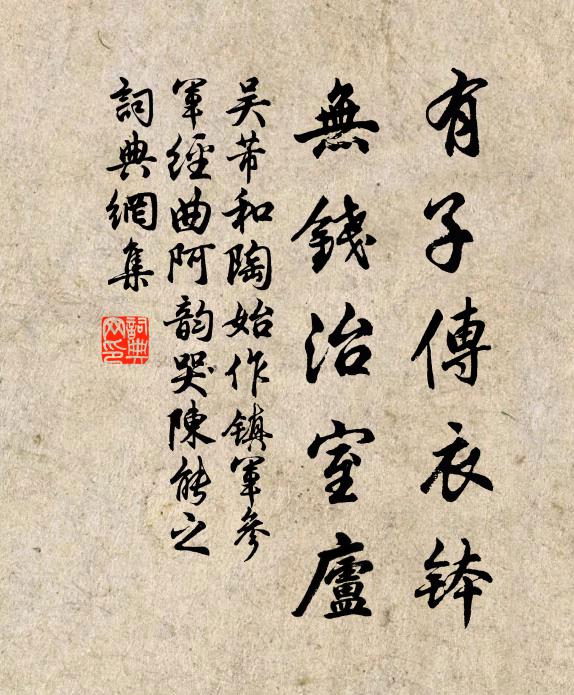 有子傳衣鉢
無錢治室廬
吴芾和陶始作鎮軍參
軍經曲阿韵哭陳能之
詞典網集
詞典
网印